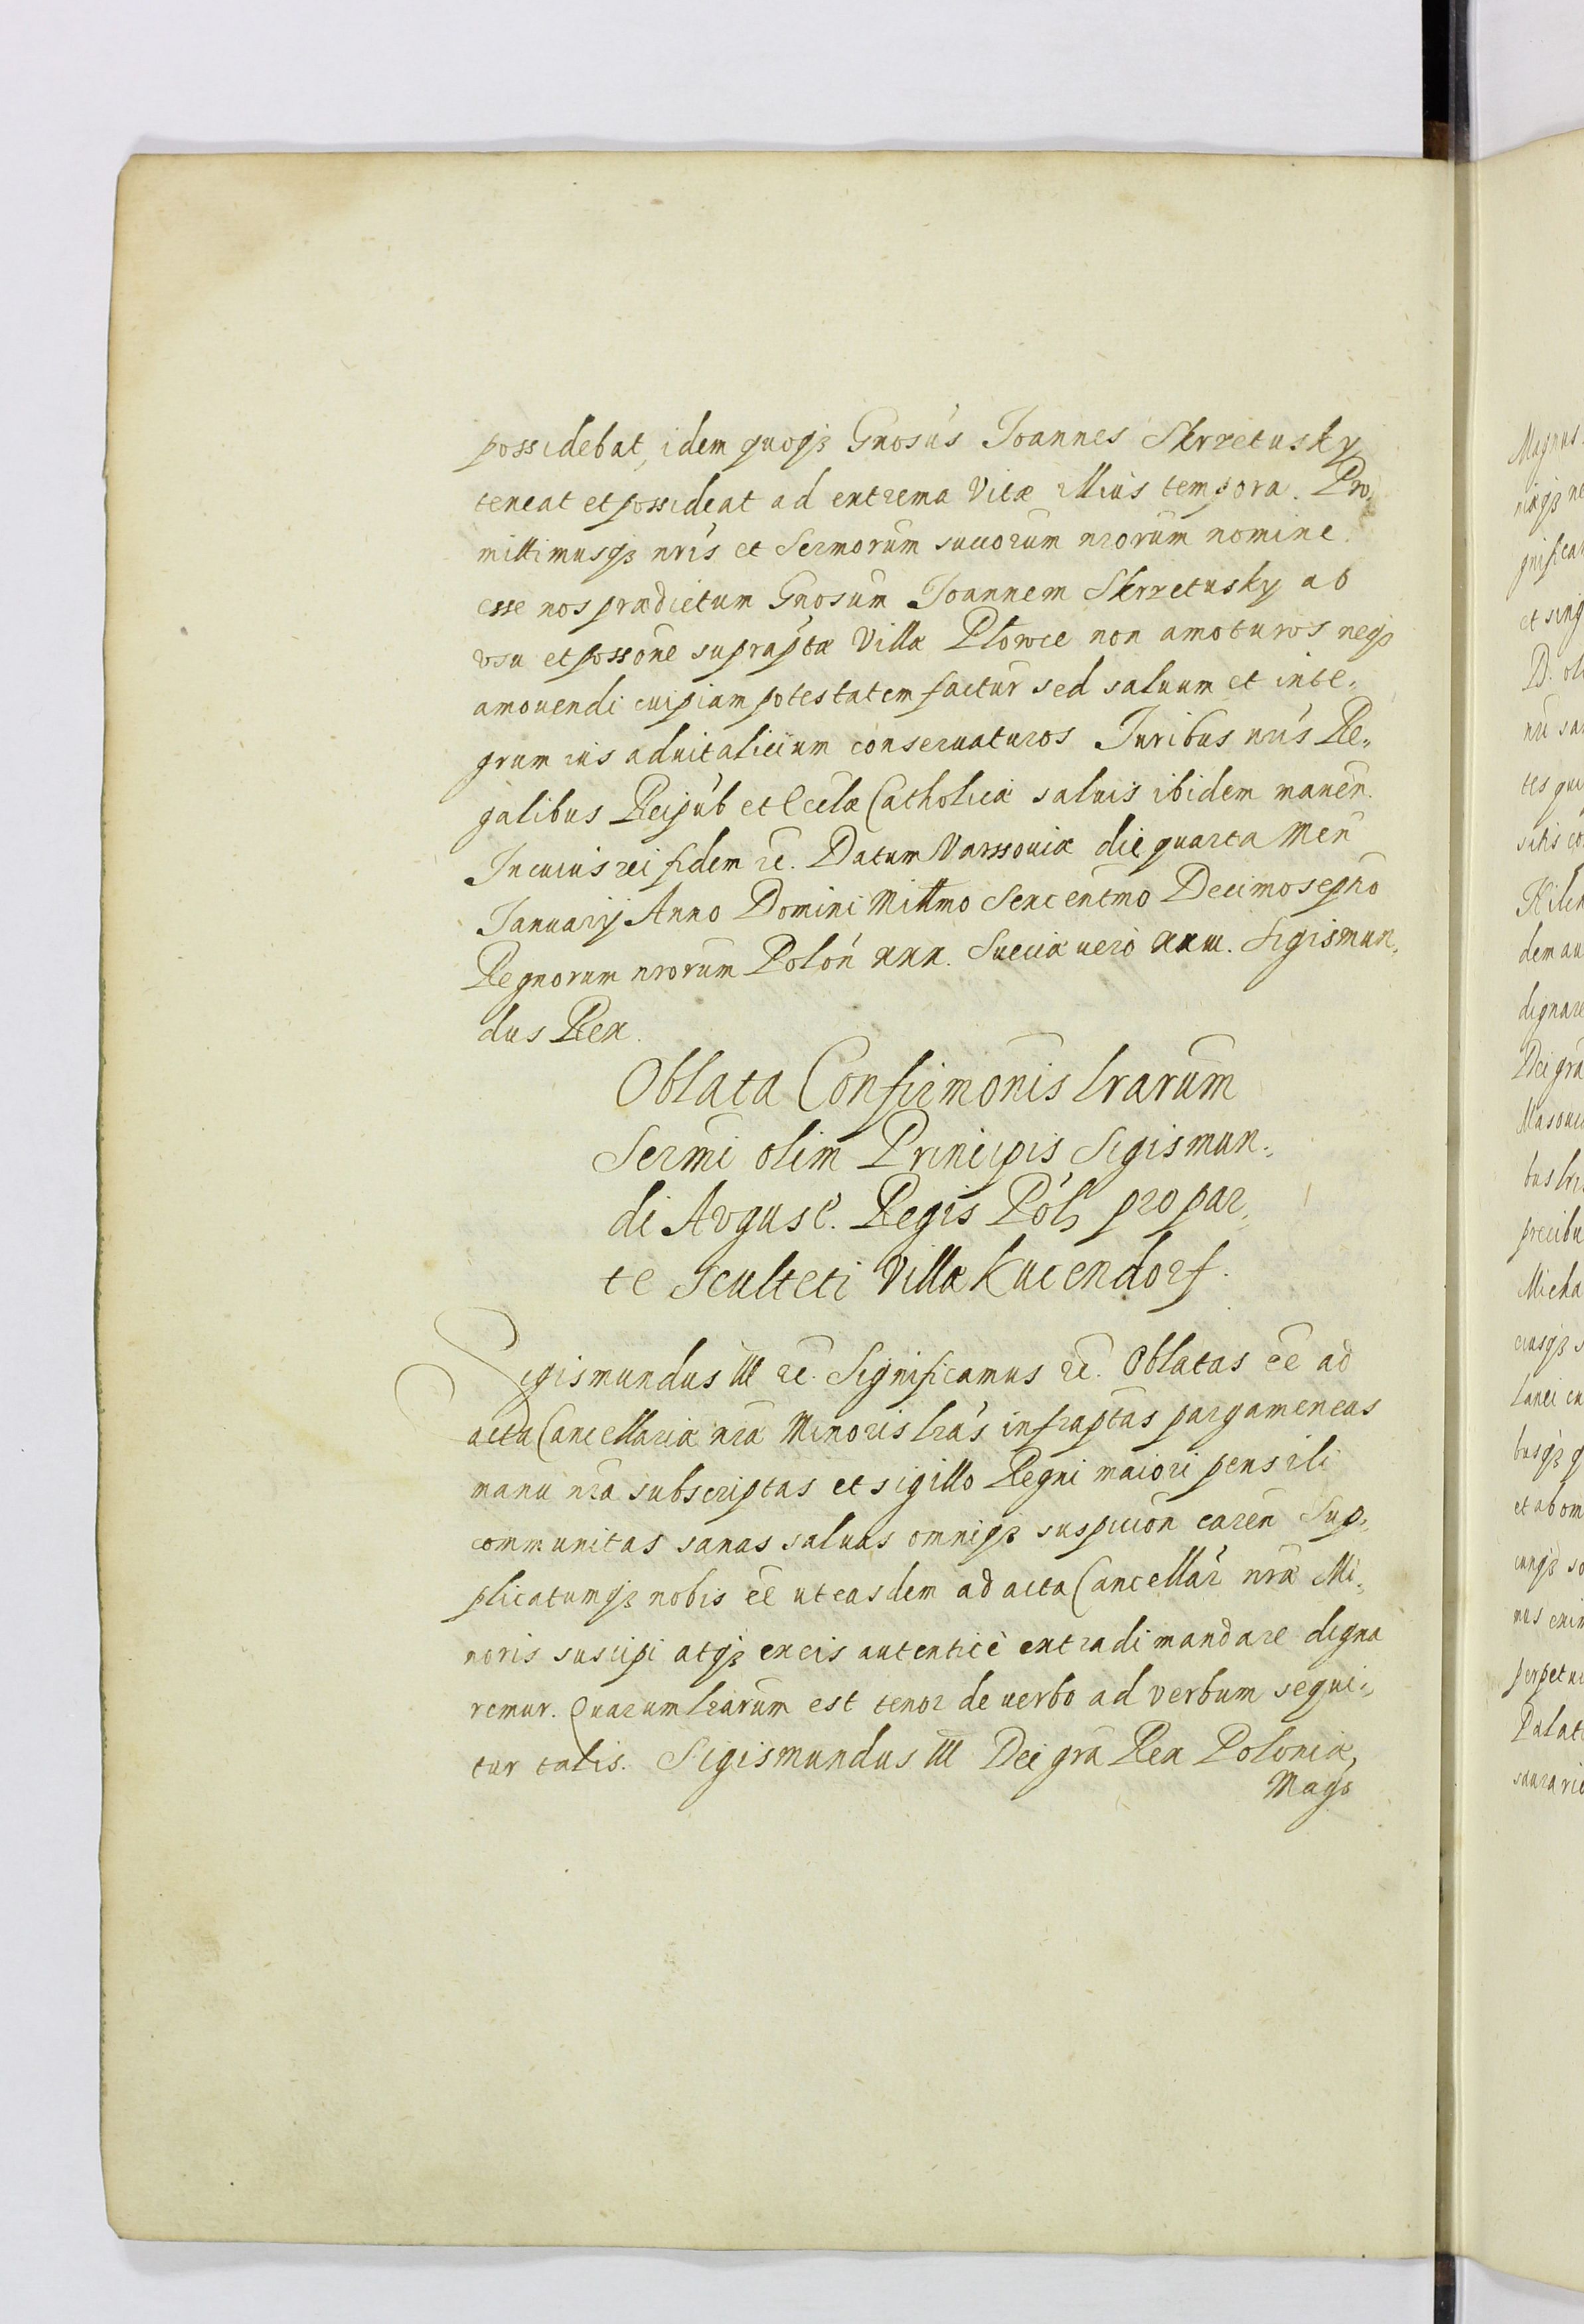 possidebat, idem quoqȝ Gnosus Joannes Skrzetusky
teneat et possideat ad extrema Vitæ illius tempora. Pro„
mittimusqȝ nris et Sermorum succorum nrorum nomine
esse nos prædictum Gnosum Joannem Skrzetusky ab
vsu et possone suprapta Villæ Plowce non amoturos neqȝ
amouendi cuipiam potestatem factur sed saluum et inte„
grum ius aduitalitium conseruaturos Juribus nris Re„
galibus Reipub et Eccla Catholicæ saluis ibidem manen.
In cuius rei fidem ec. Datum Varssouiæ die quarta Men
Januarij Anno Domini Millmo Sexcentmo Decimo septo
Regnorum nrorum Polon xxx. Sueciæ uero xxiii. Sigismun„
dus Rex.
Oblata Confirmonis lrarum
Sermi olim Principis Sigismun„
di August. Regis Pol, pro par„
te Sculteti Villæ Kucendorf.
Sigismundus III ec. Significamus ec. Oblatas ee ad
acta Cancellariæ nra Minoris lras infraptas pargameneas
manu nra subscriptas et sigillo Regni maiori pensili
communitas sanas saluas omniqȝ suspicion caren Sup„
plicatumqȝ nobis ee ut easdem ad acta Cancellar nræ Mi„
noris suscipi atqȝ ex eis autentice extradi mandare digna
remur. Quarum lrarum est tenor de uerbo ad verbum sequi„
tur talis. Sigismundus III Dei gra Rex Poloniæ,
Mags
Magnus
niaqȝ ne
gnifica
et sing
D. ol
nri sa
tes qui
sitis co
dem au
dignare
Dei gra
Masoui
bus lris
precibu
Micha
eiusqȝ s
lanei cu
busqȝ q
et ab om
cunqȝ so
mus enim
perpetui
Palati